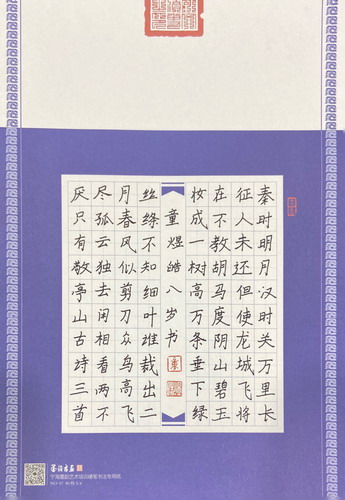 秦时明月汉时关万里长
征人未还但使龙城飞将
在不教胡马度阴山碧玉
妆成一树高万条垂下绿
童煜皓八岁书
丝绦不知细叶谁裁出二
月春风似剪刀众鸟高飞
尽孤云独去闲相看两不
厌只有敬亭山古诗三首
宁海墨韵艺术培训硬笔书法专用纸